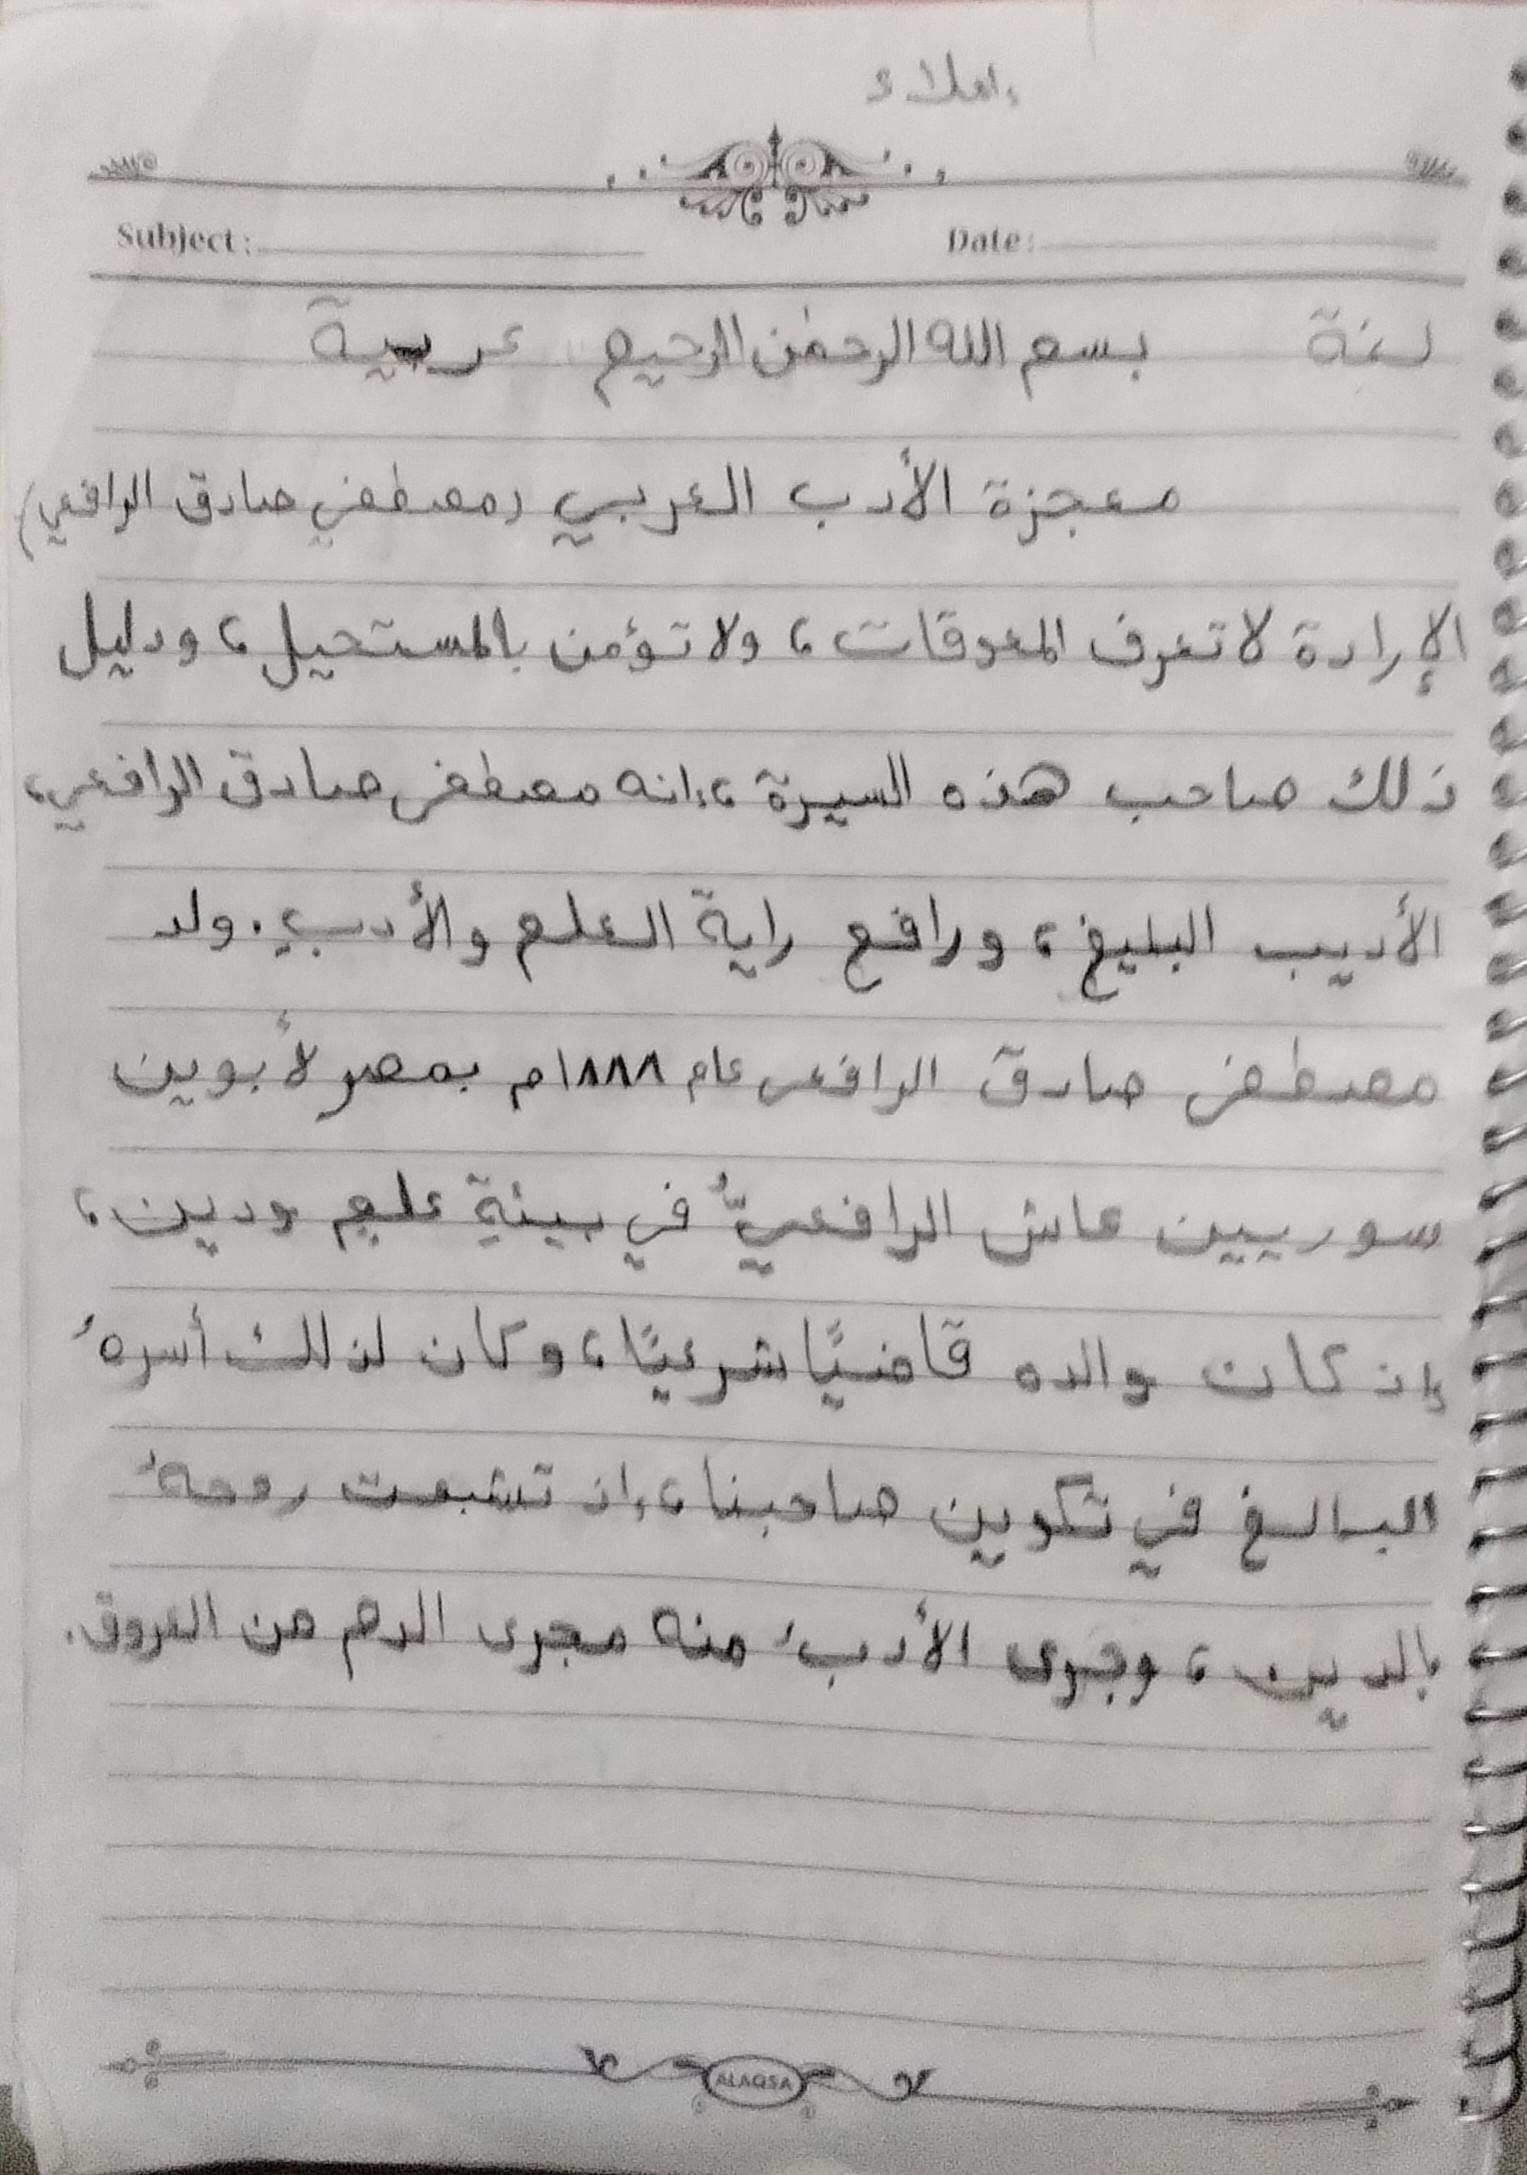 إملاء
Subject: Date:
لغة بسم الله الرحمٰن الرحيم عربية
معجزة الأدب العربي (مصطفي صادق الرافعي)
الإرادة لا تعرف المعوقات، ولا تؤمن بالمستحيل، ودليل
ذلك صاحب هذه السيرة، إنه مصطفى صادق الرافعي،
الأديب البليغ، ورافع راية العلم والأدب. ولد
مصطفى صادق الرافعى عام ١٨٨٨م بمصر لأبوين
سوريين عاش الرافعيُّ في بيئةِ علمٍ ودين،
إذ كان والده قاضيًا شرعيًا، وكان لذلك أسرهُ
البالغ في تكوين صاحبنا، إذ تشبعت روحهُ
بالدين، وجرى الأدبُ منه مجرى الدم من العروق.
ALAQSA